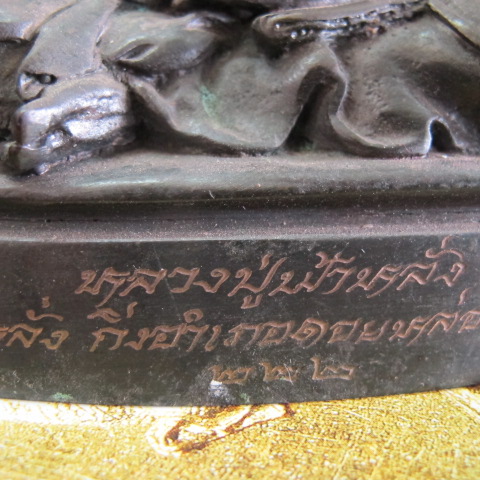 หลวงปู่ฟ้าหลั่ง
หลั่ง กิ่งอำเภอดอยหล่อ
๒๒ ๒๒ ๒